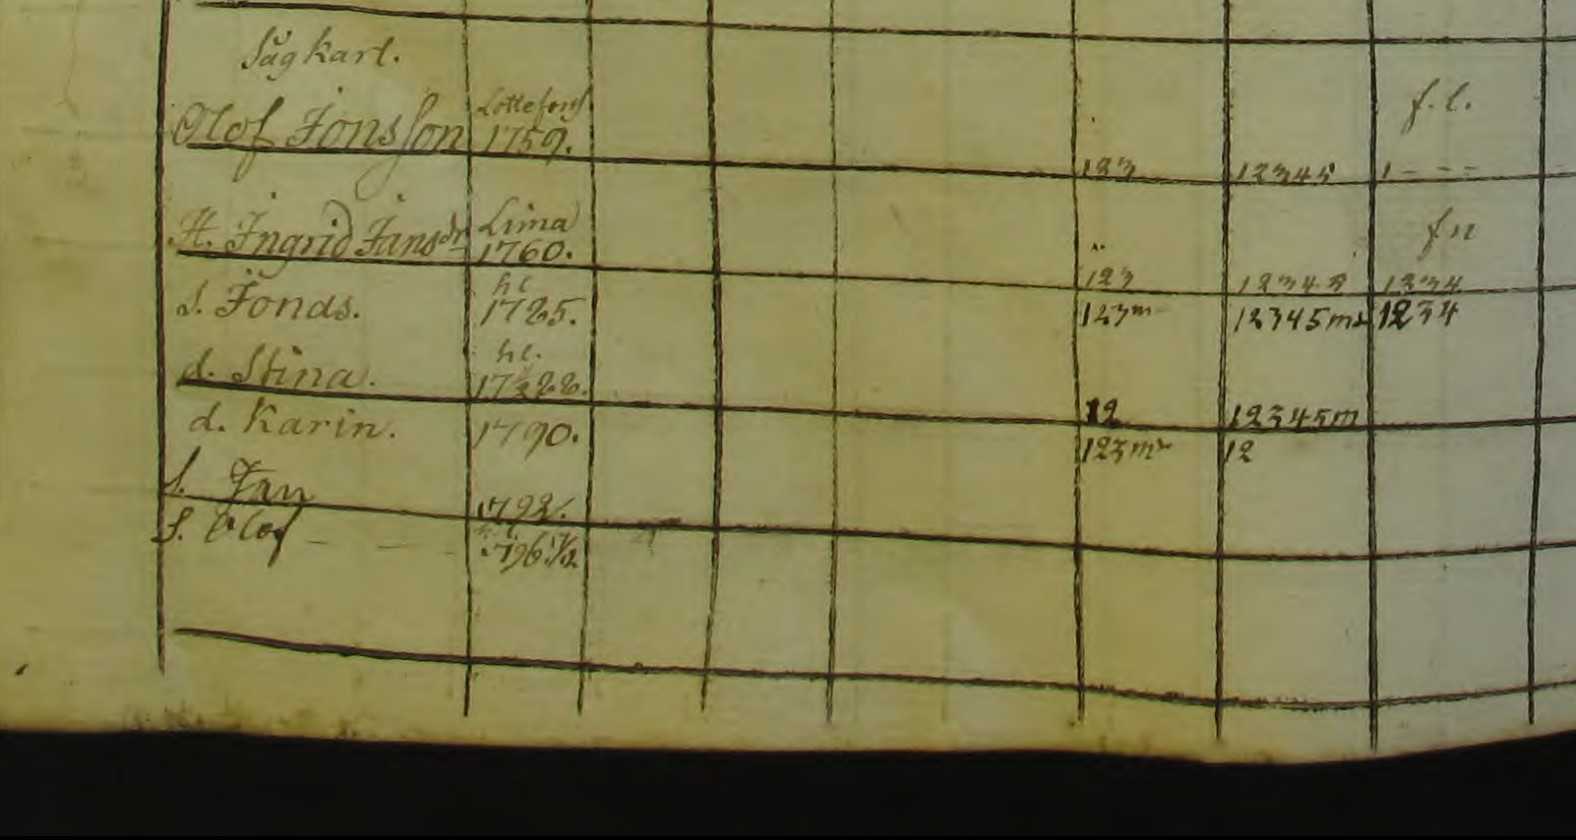 Sågkarl.
Olof Jonsson Lottefors 1759. 123 12345 1 - - - f. l.
H. Ingrid Jansdr Lima 1760. 123 12345 1234 f n
S. Jonas. hl 1785. 123m 12345m 1234
d. Stina. hl. 1788. 12 12345m
d. Karin. 1790. 123m 12
S. Jan 1792.
S. Olof 1796.